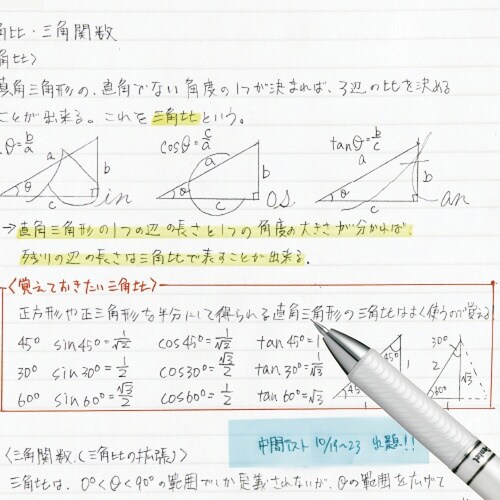 角比・三角関数
角比〉
直角三角形の、直角でない角度の1つが決まれば、3辺の比を決める
ことが出来る。これを三角比という。
θ=b/a cosθ=c/a tanθ=b/c
a b θ c in
a b θ c os
a b θ c an
→直角三角形の1つの辺の長さと1つの角度の大きさが分かれば、
残りの辺の長さは三角比で表すことが出来る。
〈覚えておきたい三角比〉
正方形や正三角形を半分にして得られる直角三角形の三角比はよく使うので覚える
45° sin45°=1/√2 cos45°=1/√2 tan45°=1
30° sin30°=1/2 cos30°=√3/2 tan30°=√3
60° sin60°=√3/2 cos60°=1/2 tan60°=√3
45° 1
30° 2 √3 60°
中間テスト 10/19~23 出題!!
〈三角関数(三角比の拡張)〉
三角比は、0°<θ<90°の範囲でしか定義されないが、θの範囲を広げて